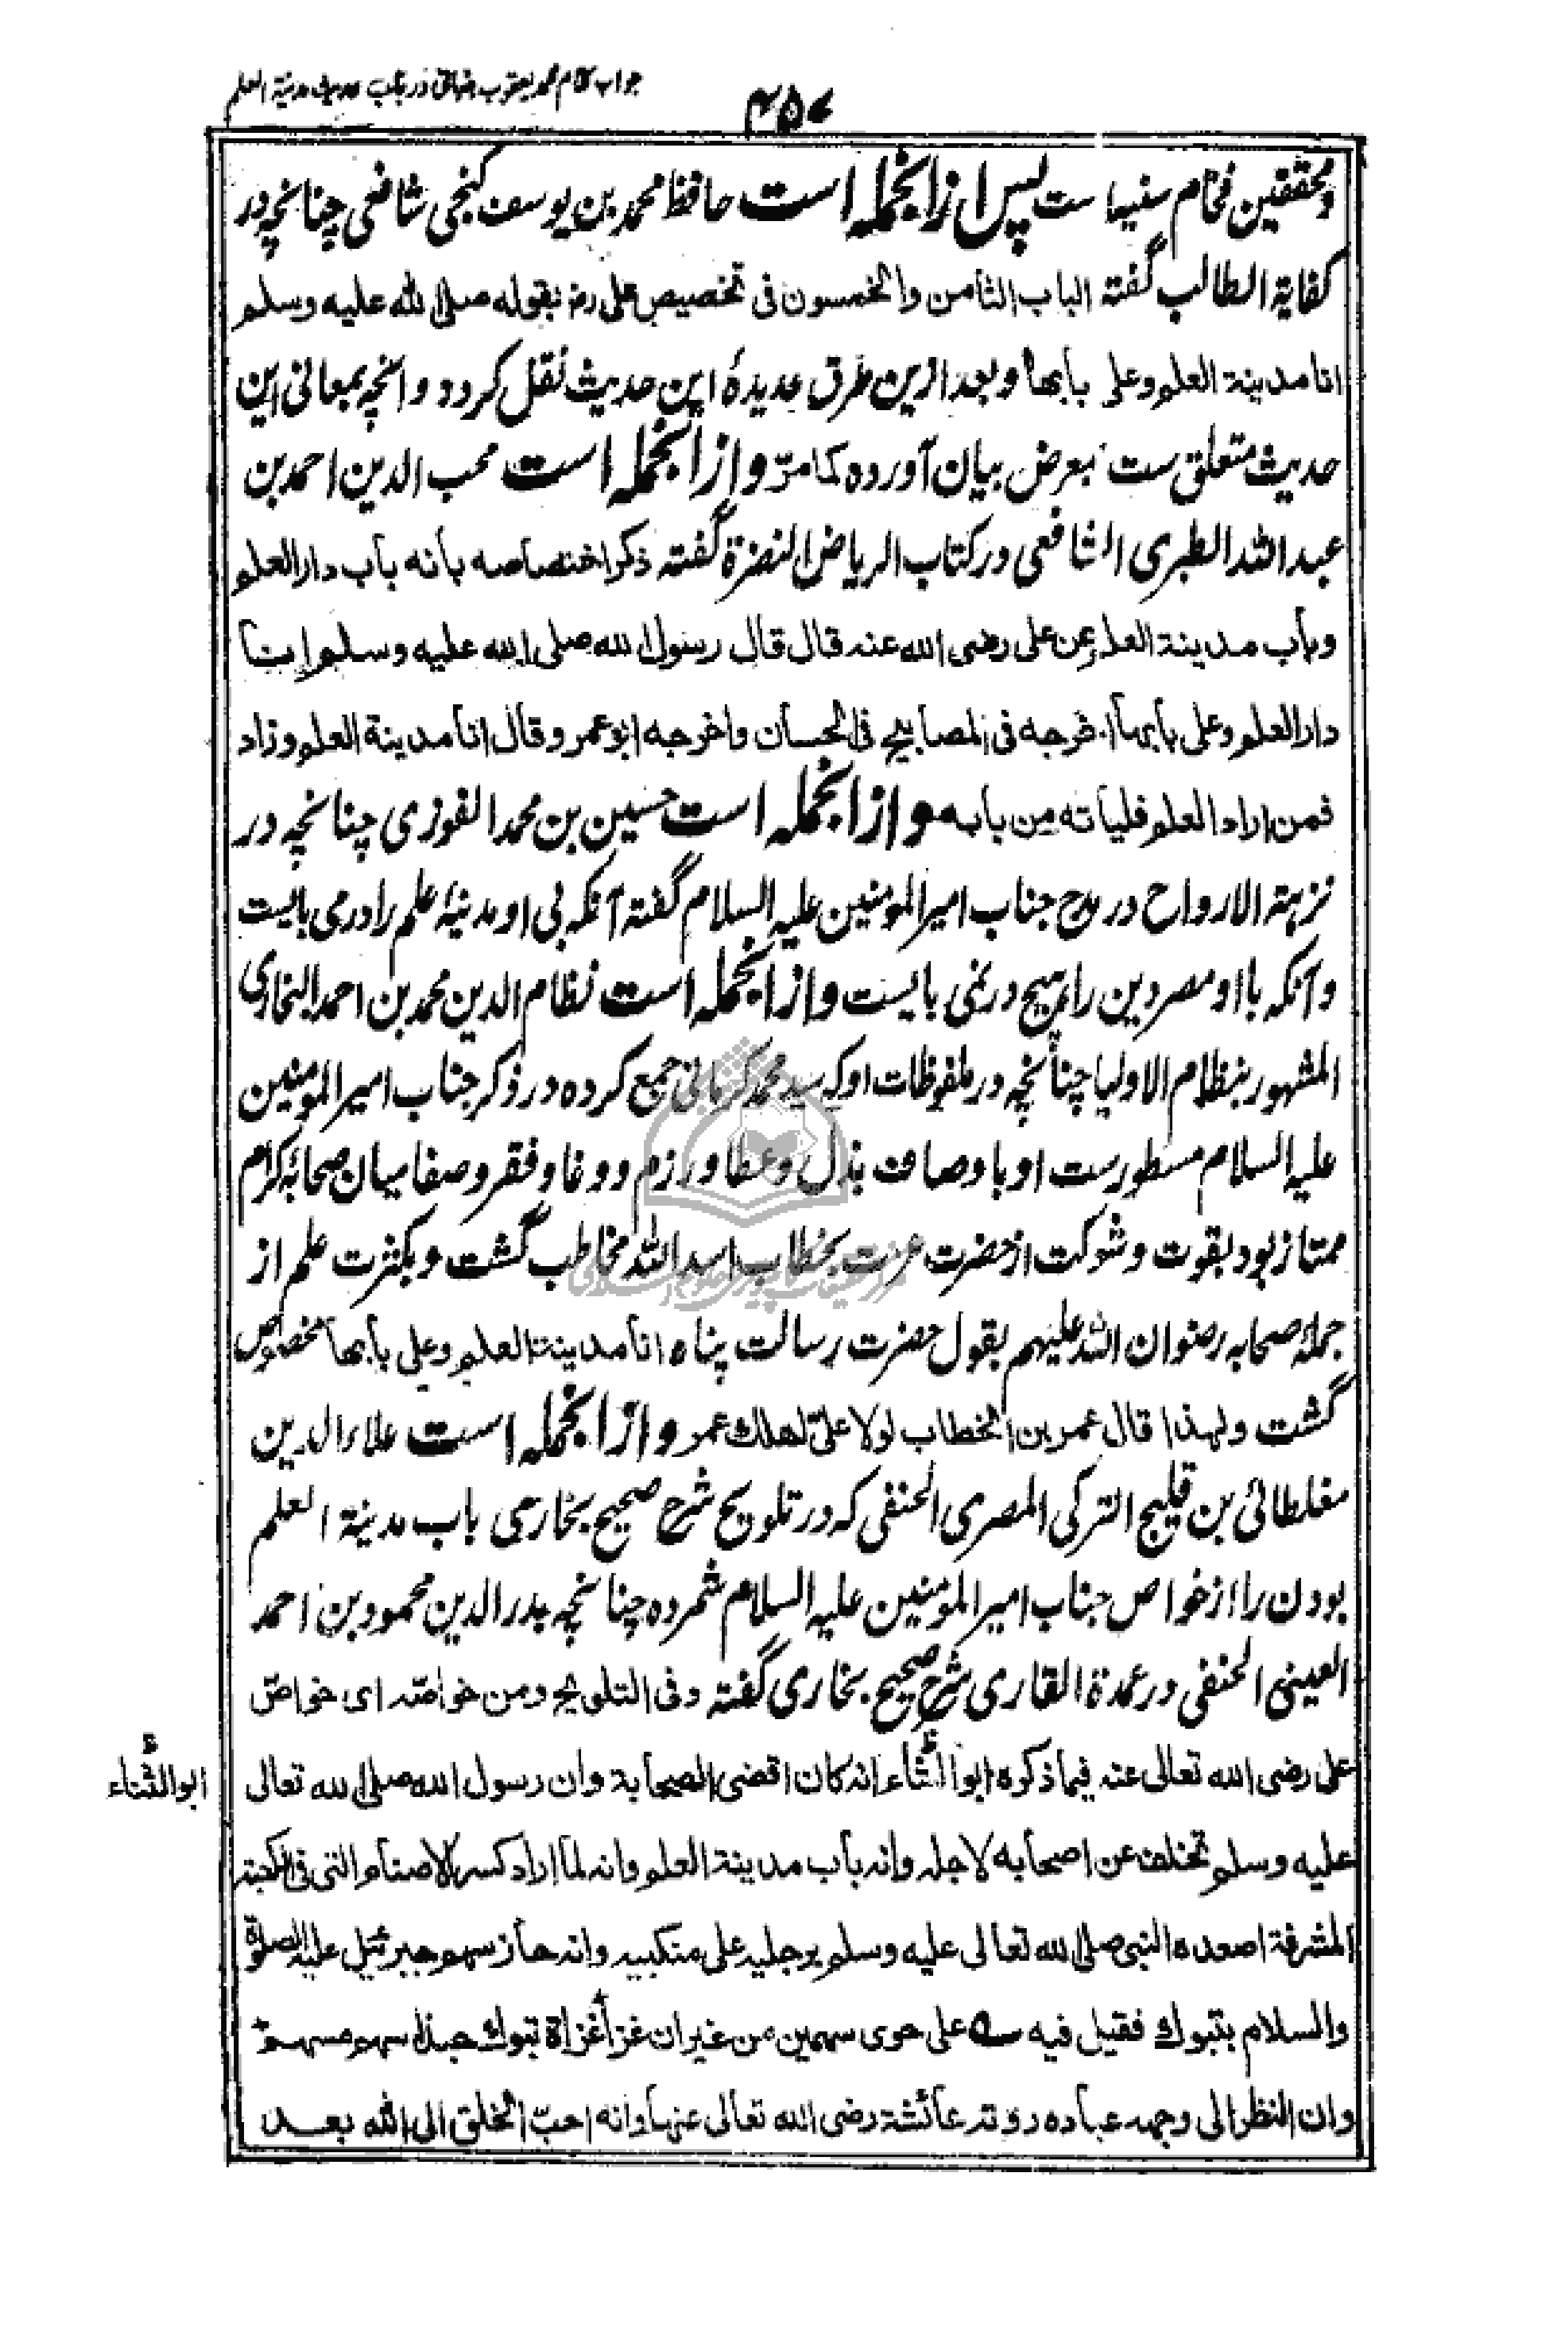 جواب کلام محمد یعقوب بنهانی در باب حدیث مدینة العلم
۴۵۷
و محققین فخام سنیه است پس ازانجمله است حافظ محمد بن یوسف کنجی شافعی چنانچه در
کفایة الطالب گفته الباب الثامن والخمسون فی تخصیص علی رض بقوله صلی الله علیه وسلم
انا مدینة العلم وعلی بابها وبعد ازین طرق عدیدهٔ این حدیث نقل کرده و انچه بمعانی این
حدیث متعلق ست بمعرض بیان آورده کما مرّ وازانجمله است محب الدین احمد بن
عبد الله الطبری الشافعی در کتاب الریاض النضرة گفته ذکر اختصاصه بانه باب دار العلم
وباب مدینة العلم عن علی رضی الله عنه قال قال رسول الله صلی الله علیه وسلم انا
دار العلم وعلی بابها اخرجه فی المصابیح فی الحسان واخرجه ابو عمر وقال انا مدینة العلم وزاد
فمن اراد العلم فلیاته من بابه وازانجمله است حسین بن محمد الفوزی چنانچه در
نزهة الارواح در مدح جناب امیر المومنین علیه السلام گفته آنکه بی او مدینهٔ علم را در می بایست
و آنکه با او مصر دین را هیچ در نمی بایست وازانجمله است نظام الدین محمد بن احمد البخاری
المشهور بنظام الاولیا چنانچه در ملفوظات او که سید محمد کرمانی جمع کرده در ذکر جناب امیر المومنین
علیه السلام مسطورست او باوصاف بذل و عطا و رزم و وغا و فقر و صفا میان صحابهٔ کرام
ممتاز بود بقوت و شوکت از حضرت عزت بخطاب اسد الله مخاطب گشت و بکثرت علم از
جملهٔ صحابه رضوان الله علیهم بقول حضرت رسالت پناه انا مدینة العلم وعلی بابها مخصوص
گشت ولهذا قال عمر بن الخطاب لولا علیّ لهلک عمر وازانجمله است علاء الدین
مغلطائی بن قلیج الترکی المصری الحنفی که در تلویح شرح صحیح بخاری باب مدینة العلم
بودن را از خواص جناب امیر المومنین علیه السلام شمرده چنانچه بدر الدین محمود بن احمد
العینی الحنفی در عمدة القاری شرح صحیح بخاری گفته وفی التلویح ومن خواصّه ای خواصّ
علی رضی الله تعالی عنه فیما ذکره ابو الثناء انه کان اقضی الصحابة وان رسول الله صلی الله تعالی
ابو الثناء
علیه وسلم تخلف عن اصحابه لاجله وانه باب مدینة العلم وانه لما اراد کسر الاصنام التی فی الکعبة
المشرفة اصعده النبی صلی الله تعالی علیه وسلم برجلیه علی منکبیه وانه حاز سهم جبرئیل علیه الصلوة
والسلام بتبوک فقیل فیه علی حوی سهمین من غیر ان غزا غزاة تبوک حبذا سهم مسهم
وان النظر الی وجهه عباده روته عائشة رضی الله تعالی عنها وانه احبّ الخلق الی الله بعد